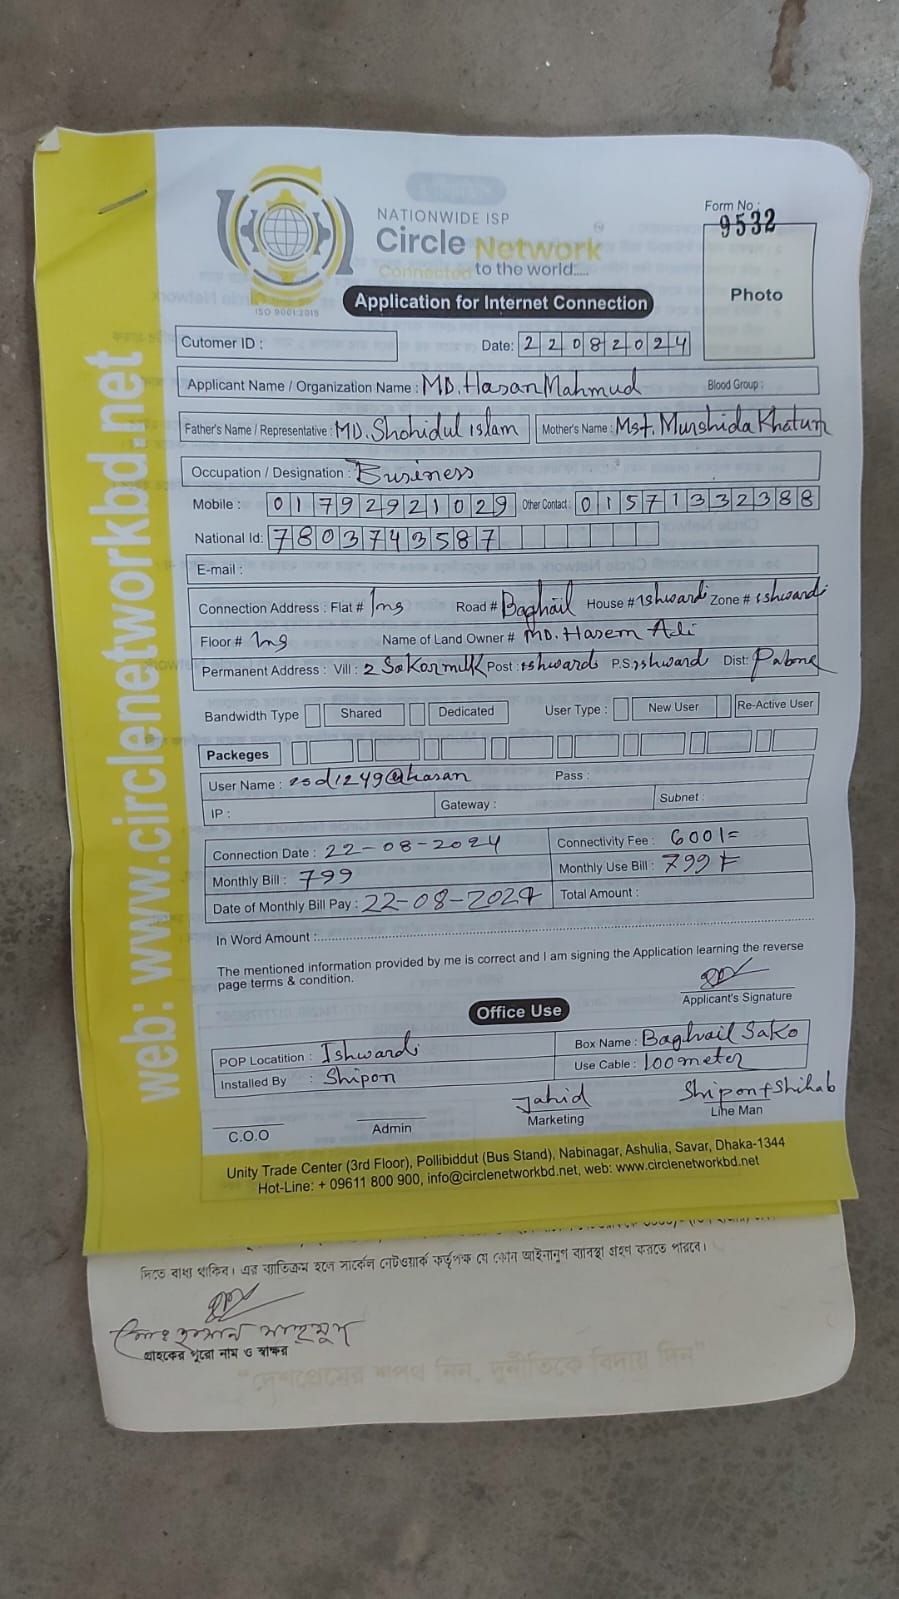 Form No :
9532
NATIONWIDE ISP
Circle Network
Connected to the world.....
ISO 9001:2015
Photo
Application for Internet Connection
Cutomer ID :
Date: 22082024
Applicant Name / Organization Name : MD. Hasan Mahmud Blood Group :
Father's Name / Representative : MD. Shohidul islam Mother's Name : Mst. Murshida Khatum
Occupation / Designation : Business
Mobile : 01792921029 Other Contact : 01571332388
National Id: 7803743587
E-mail :
Connection Address : Flat # 1ng Road # Baghail House # ishwardi Zone # ishwardi
Floor # 1ng Name of Land Owner # MD. Hasem Ali
Permanent Address : Vill : Post : ishwardi P.S: Dist: Pabna
Bandwidth Type Shared Dedicated User Type : New User Re-Active User
Packeges
User Name : isd1249@hasan Pass :
IP : Gateway : Subnet :
Connection Date : 22-08-2024 Connectivity Fee : 600/=
Monthly Bill : 799 Monthly Use Bill : 799 F
Date of Monthly Bill Pay : 22-08-2024 Total Amount :
In Word Amount :
The mentioned information provided by me is correct and I am signing the Application learning the reverse
page terms & condition.
Applicant's Signature
Office Use
POP Locatition : Ishwardi Box Name : Baghail Sako
Installed By : Shipon Use Cable : 100 meter
Jahid Shipon + Shihab
C.O.O Admin Marketing Line Man
Unity Trade Center (3rd Floor), Pollibiddut (Bus Stand), Nabinagar, Ashulia, Savar, Dhaka-1344
Hot-Line: + 09611 800 900, info@circlenetworkbd.net, web: www.circlenetworkbd.net
web: www.circlenetworkbd.net
দিতে বাধ্য থাকিব। এর ব্যতিক্রম হলে সার্কেল নেটওয়ার্ক কর্তৃপক্ষ যে কোন আইনানুগ ব্যবস্থা গ্রহণ করতে পারবে।
মোঃ হাসান মাহমুদ
গ্রাহকের পুরো নাম ও স্বাক্ষর
“দেশপ্রেমের শপথ নিন, দুর্নীতিকে বিদায় দিন”